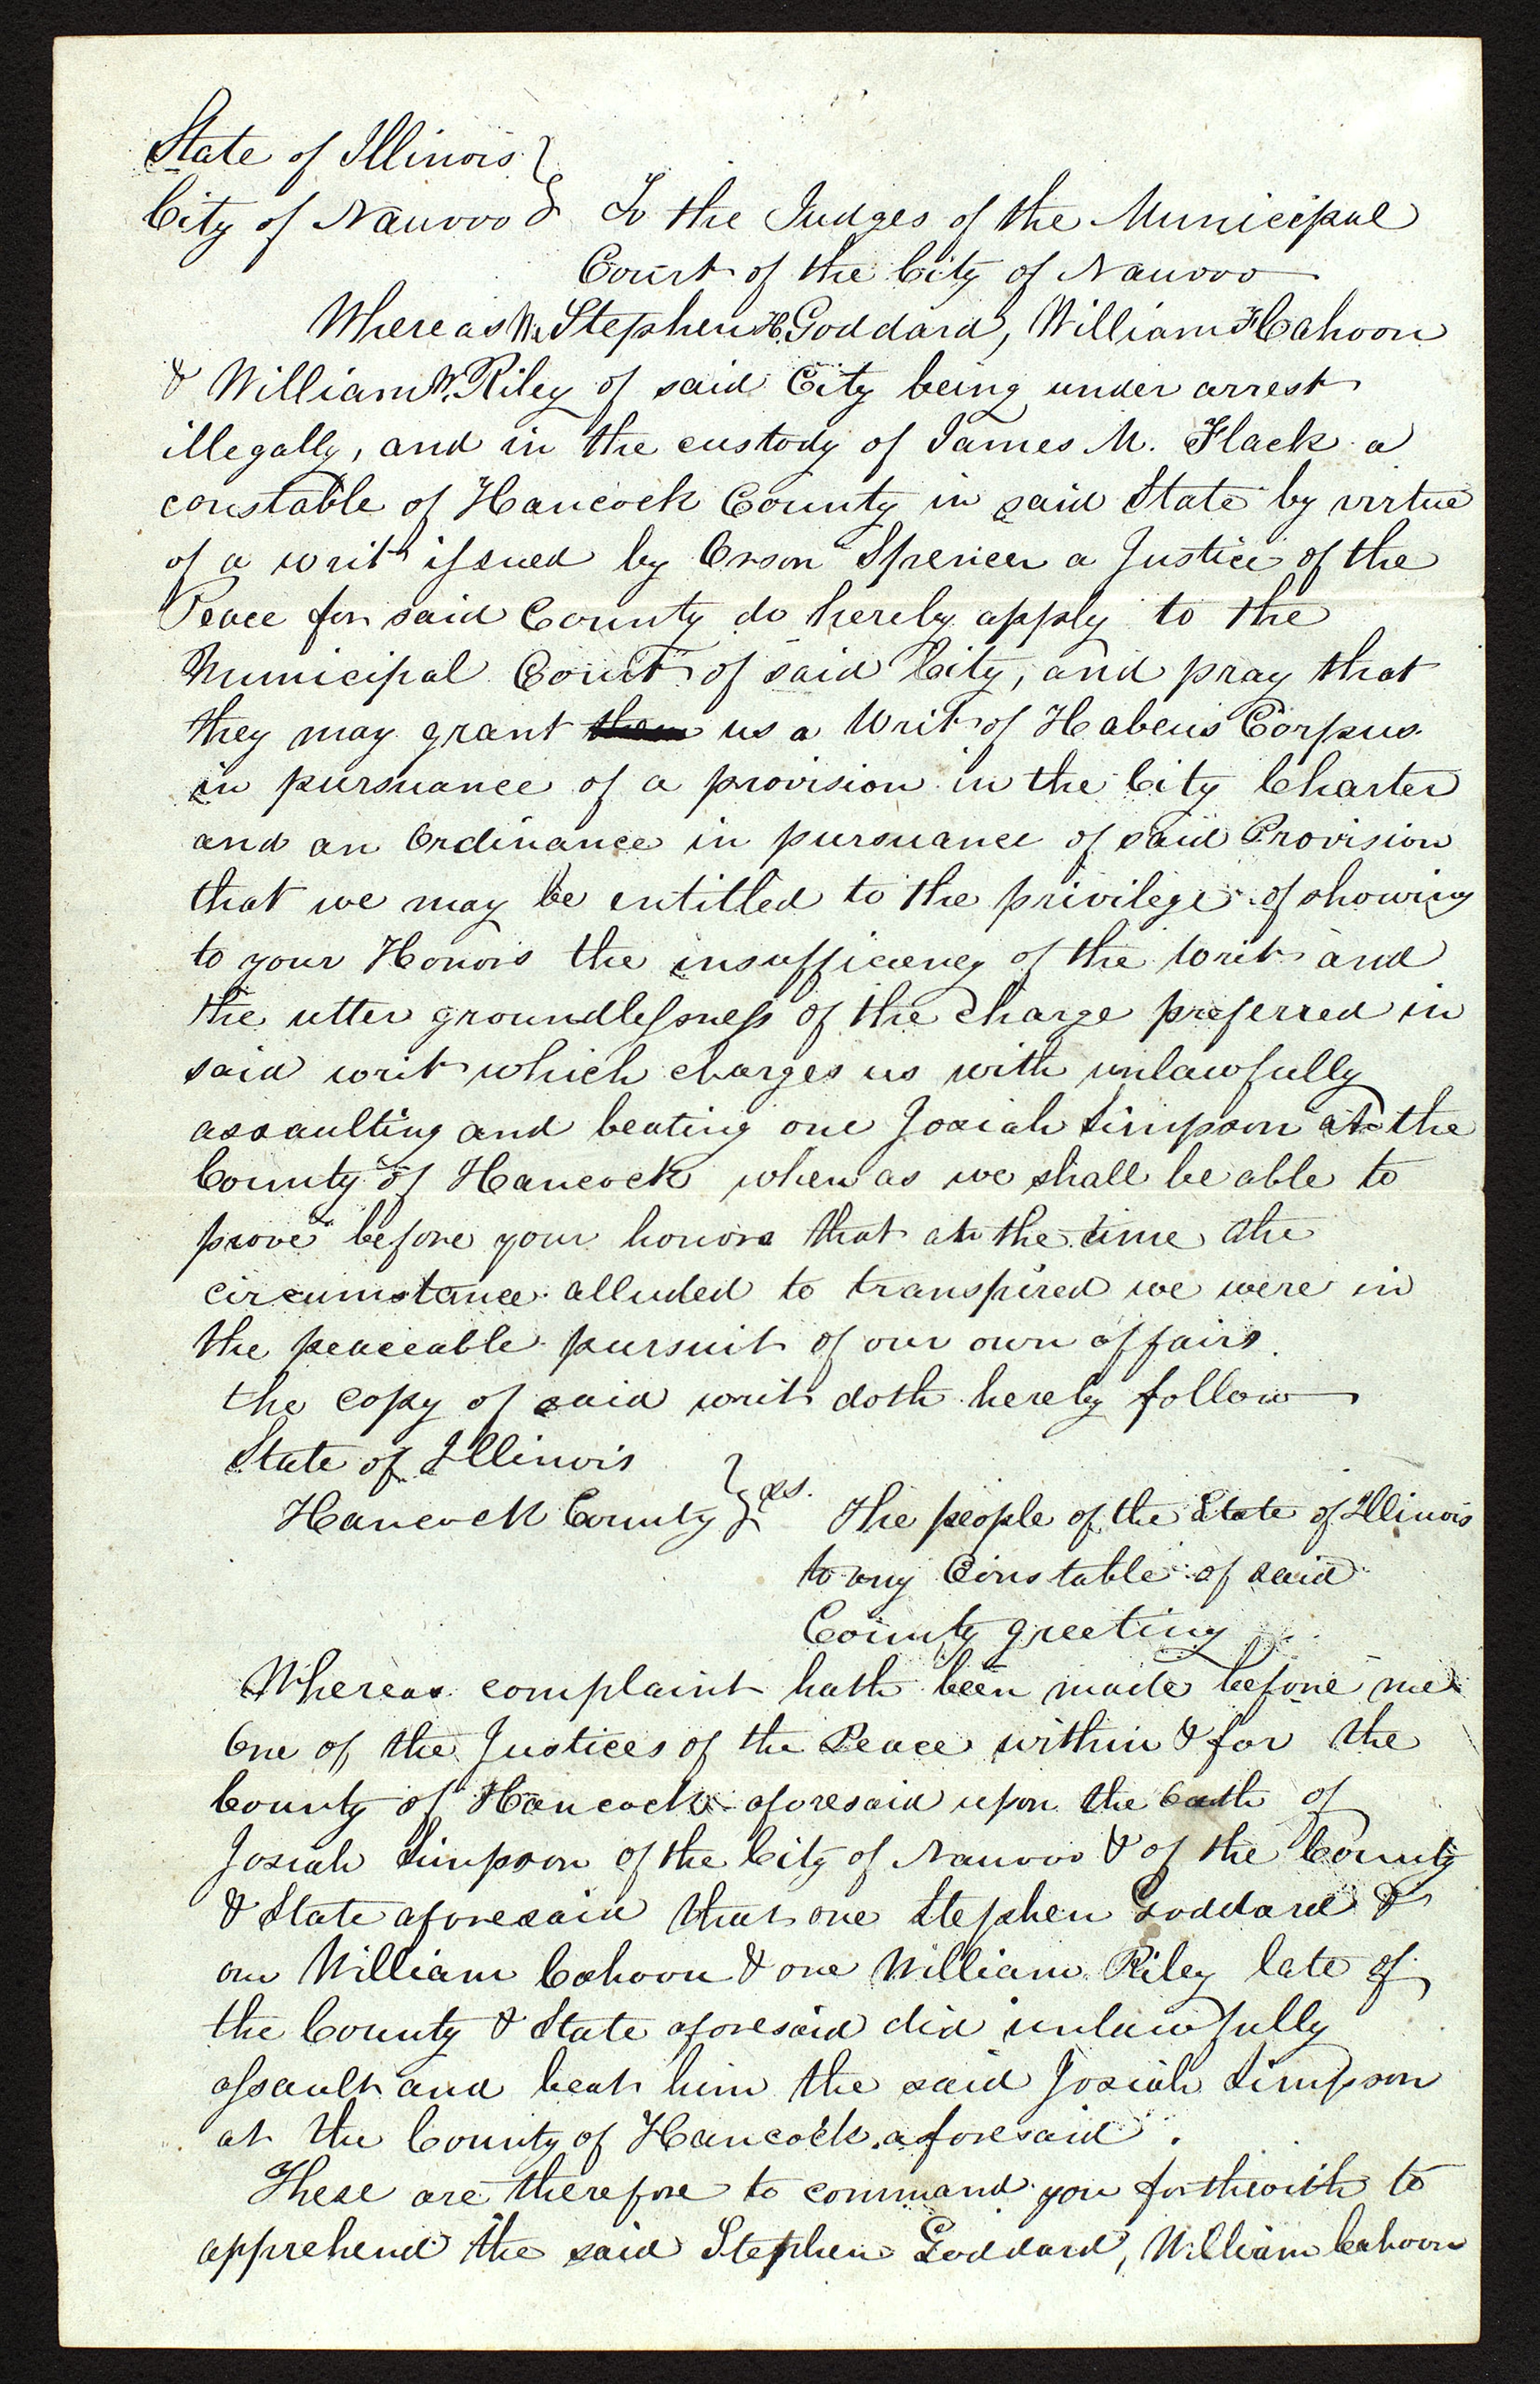 State of Illinois }
City of Nauvoo } To the Judges of the Municipal
Court of the City of Nauvoo
Whereas We Stephen H. Goddard, William F Cahoon
& William W. Riley of said City being under arrest
illegally, and in the custody of James M. Flack a
constable of Hancock County in said State by virtue
of a writ issued by Orson Spencer a Justice of the
Peace for said County do hereby apply to the
Municipal Court of said City, and pray that
they may grant us a Writ of Habeus Corpus
in pursuance of a provision in the City Charter
and an Ordinance in pursuance of said Provision
that we may be entitled to the privilege of showing
to your Honors the insufficiency of the writ and
the utter groundlessness of the charge preferred in
said writ which charges us with unlawfully
assaulting and beating one Josiah Simpson at the
County of Hancock when as we shall be able to
prove before your honors that at the time the
circumstance alluded to transpired we were in
the peaceable pursuit of our own affairs.
the copy of said writ doth hereby follow
State of Illinois
Hancock County } ss. The people of the State of Illinois
to any Constable of said
County greeting
Whereas complaint hath been made before me
One of the Justices of the Peace within & for the
County of Hancock aforesaid upon the Oath of
Josiah Simpson of the City of Nauvoo & of the County
& State aforesaid that one Stephen Goddard &
one William Cahoon & one William Riley late of
the County & State aforesaid did unlawfully
assault and beat him the said Josiah Simpson
at the County of Hancock aforesaid.
These are therefore to command you forthwith to
apprehend the said Stephen Goddard, William Cahoon